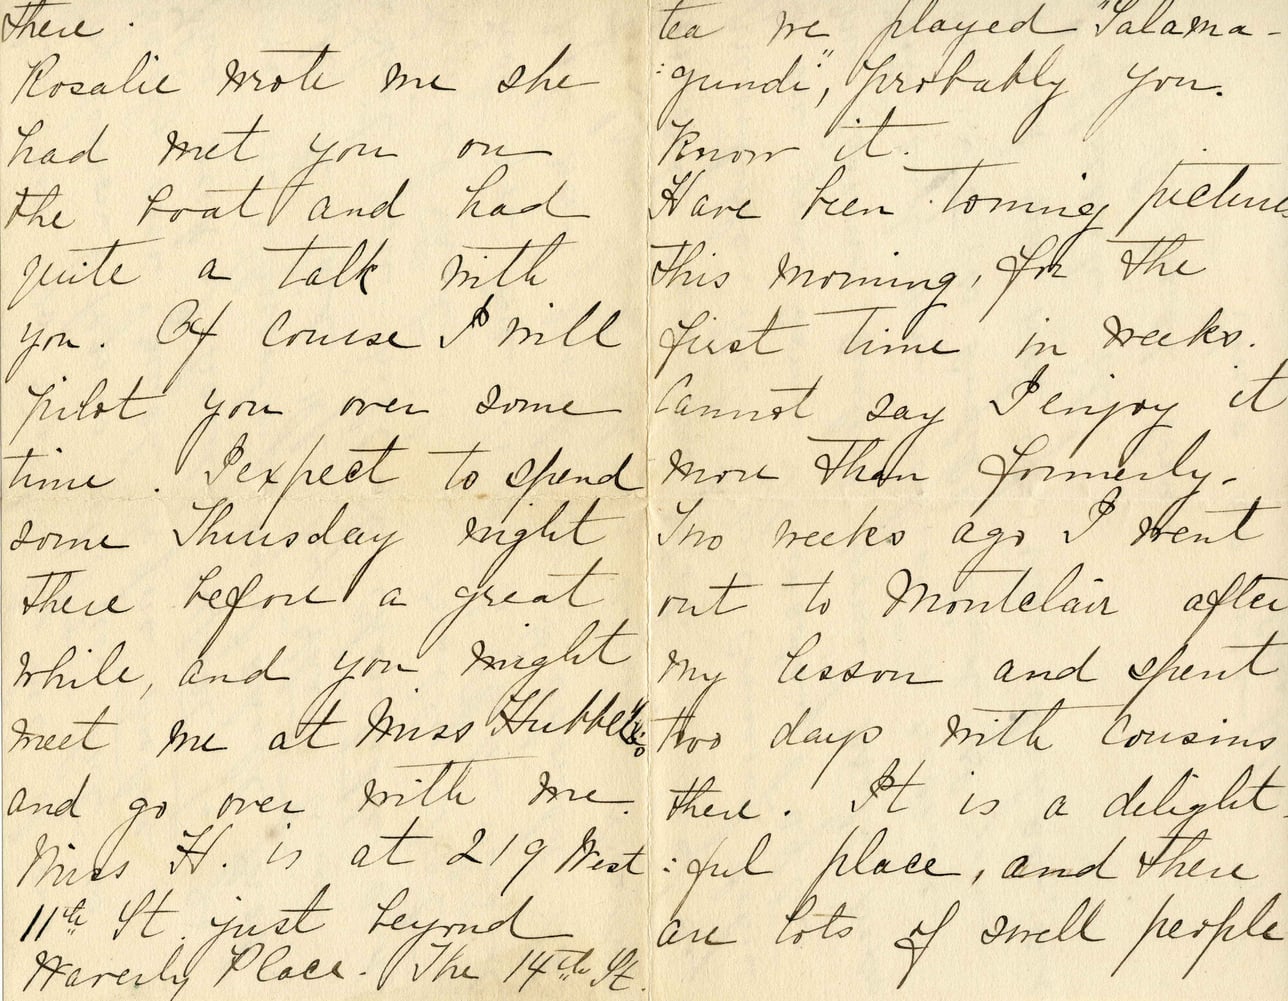 there.
Rosalie wrote me she
had met you on
the boat and had
quite a talk with
you. Of course I will
pilot you over some
time. I expect to spend
some Thursday night
there before a great
while, and you might
meet me at Miss Hubbell's
and go over with me.
Miss H. is at 219 West
11th St. just beyond
Waverly Place. The 14th St.
tea we played "Salama-
:gundi", probably you.
know it.
Have been toning pictures
this morning, for the
first time in weeks.
Cannot say I enjoy it
more than formerly.
Two weeks ago I went
out to Montclair after
my lesson and spent
two days with cousins
there. It is a delight-
:ful place, and there
are lots of swell people